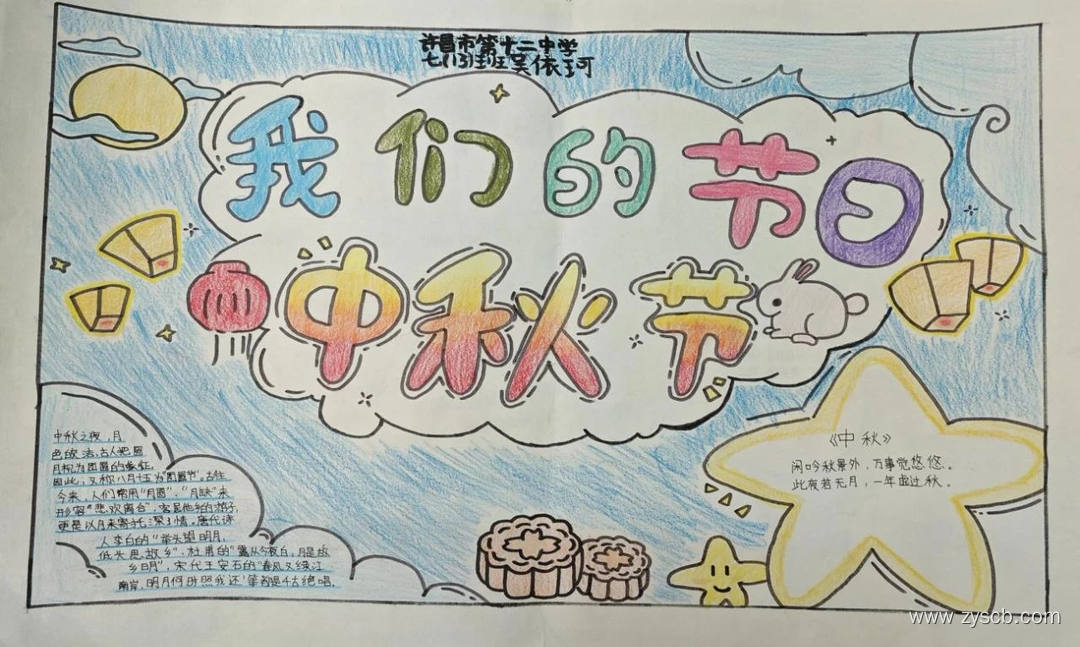 许昌市第十二中学
七(13)班吴依珂
我们的节日
中秋节
中秋之夜,月
色皎洁,古人把圆
月视为团圆的象征,
因此,又称八月十五为"团圆节"。古往
今来,人们常用"月圆"、"月缺"来
形容"悲欢离合",客居他乡的游子,
更是以月来寄托深情。唐代诗
人李白的"举头望明月,
低头思故乡",杜甫的"露从今夜白,月是故
乡明",宋代王安石的"春风又绿江
南岸,明月何时照我还"等诗是千古绝唱。
《中秋》
闲吟秋景外,万事觉悠悠。
此夜若无月,一年虚过秋。
www.zyscb.com